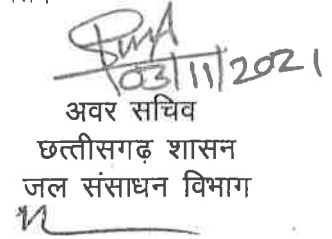 03/11/2021
अवर सचिव
छत्तीसगढ़ शासन
जल संसाधन विभाग